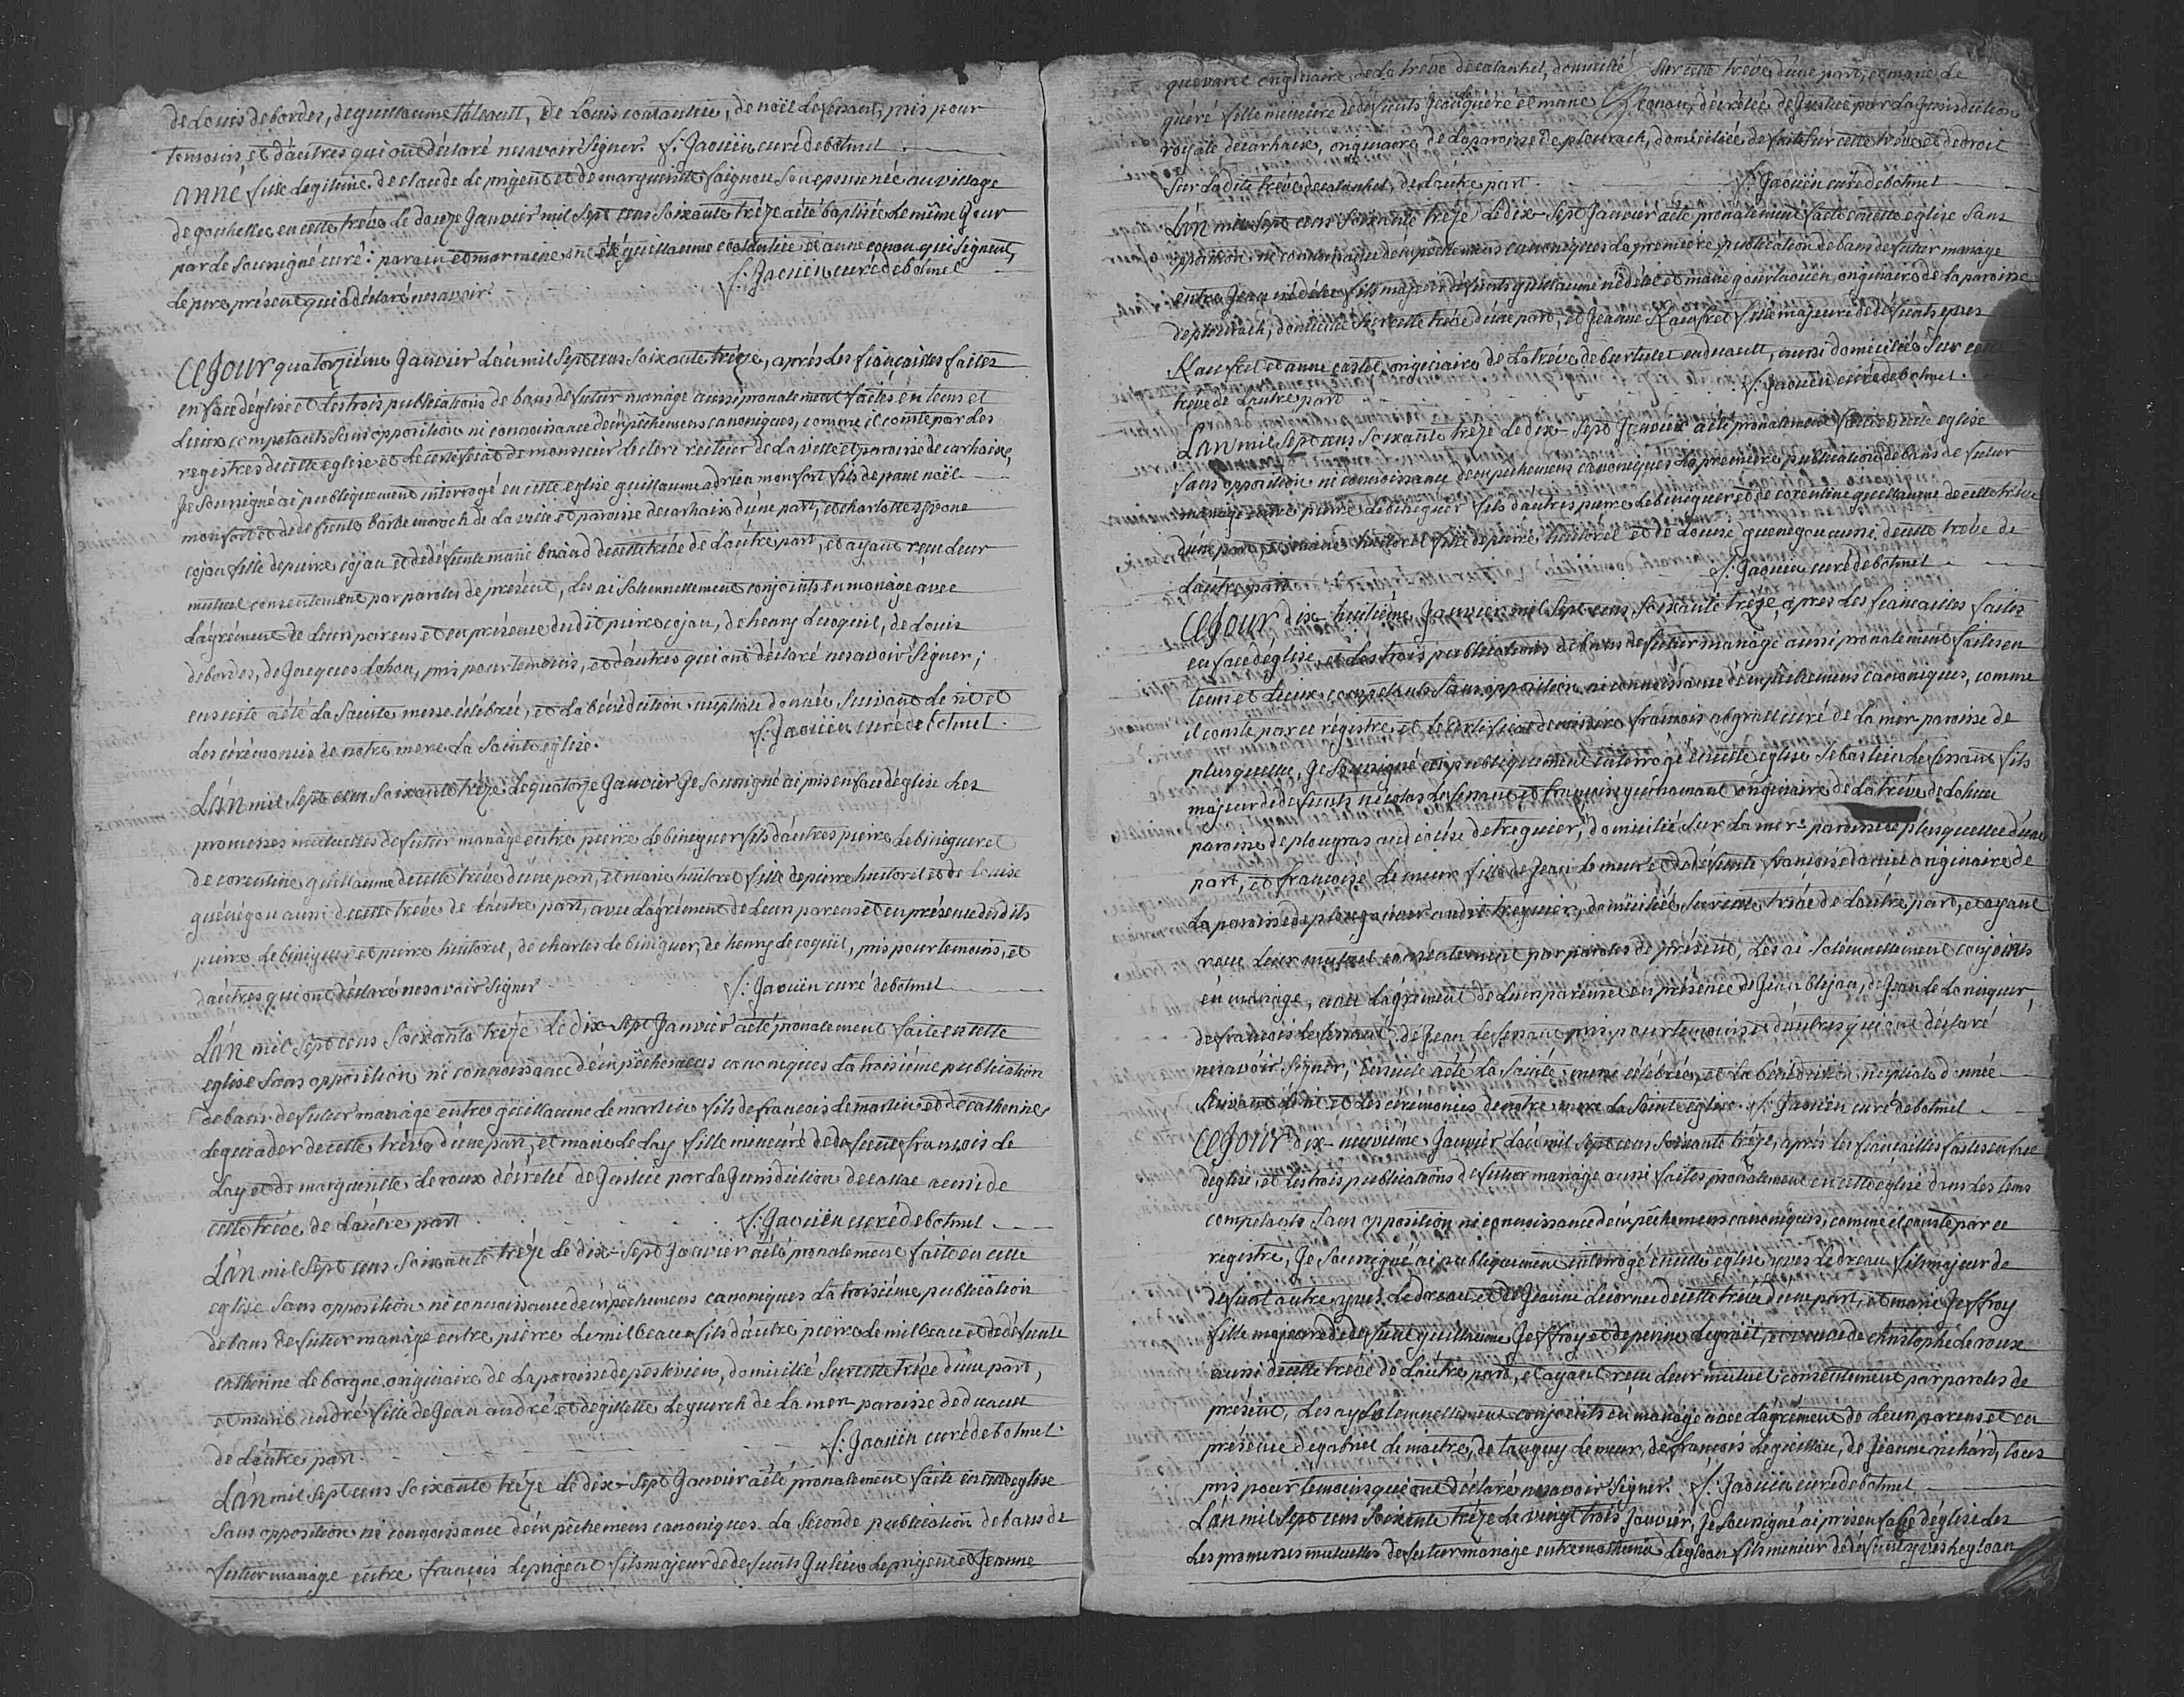 de Louis debordes, de guillaume thepault, de Louis coutantiec, de noël Leferrant, pris pour
temoins, et d'autres qui ont déclaré ne savoir signer. f: Jaouën curé de botmel
anne, fille legitime de claude le prigent et de marguerite son epouse née au village
de goshellec en cette trêve le douze Janvier mil sept cens soixante trêze a été baptisée le même Jour
par le soussigné curé: parain et marraine ont été guillaume coutantiec et anne conan qui signent,
le pere présent qui a déclaré ne savoir. f: Jaouën curé de botmel
Ce Jour quatorzième Janvier L'an mil sept cens soixante trêze, après les fiançailles faites
en face d'église et les trois publications de bans de futur mariage aussi pronalement faites en tems et
Lieux competants sans opposition ni connoissance d'empêchemens canoniques, comme il conste par les
registres de cette eglise et le certificat de monsieur leclerc recteur de la ville et paroisse de carhaix,
Je soussigné ai publiquement interrogé en cette eglise guillaume adrien monfort fils de noël
monfort et de defunte barbe moroch de la ville et paroisse de carhaix d'une part, et charlotte yvone
cojan fille de pierre cojan et de défunte marie de cette trêve de l'autre part, et ayant reçu leur
mutuel consentement par paroles de présent, les ai solennellement conjoints en mariage avec
L'agrément de leurs parens et en présence du dit pierre cojan, de henry Lecoquil, de Louis
debordes, de Jacques Lohou, pris pour temoins, et d'autres qui ont déclaré ne savoir signer;
ensuite a été la sainte messe célébrée, et la bénédiction nuptiale donnée suivant le rit et
Les cérémonies de notre mere la sainte eglise. f: Jaouën curé de botmel
L'an mil sept cens soixante trêze le quatorze Janvier Je soussigné ai pris en face d'église les
promesses mutuelles de futur mariage entre pierre Lebiniguer fils d'autres pierre Lebiniguer et
de corentine guillaume de cette trêve d'une part, et marie huitorel fille de pierre huitorel et de louise
guénégou aussi de cette trêve de l'autre part, avec l'agrément de leurs parens et en présence desdits
pierre Lebiniguer et pierre huitorel, de charles lebiniguer, de henry lecoquil, pris pour temoins, et
d'autres qui ont déclaré ne savoir signer f: Jaouën curé de botmel
L'an mil sept cens soixante trêze le dix-sept Janvier a été pronalement faite en cette
eglise sans opposition ni connoissance d'empêchemens canoniques la troisième publication
de bans de futur mariage entre guillaume le martin fils de françois le martin et de catherine
leguiader de cette trêve d'une part, et marie le lay fille mineure de defunt françois le
Lay et de marguerite le roux décrétée de Justice par la Jurisdiction de callac aussi de
cette trêve de l'autre part f: Jaouën curé de botmel
L'an mil sept cens soixante trêze le dix-sept Janvier a été pronalement faite en cette
eglise sans opposition ni connoissance d'empêchemens canoniques la troisième publication
de bans de futur mariage entre pierre Lemilbeau fils d'autre pierre Lemilbeau et de défunte
catherine leborgne originaire de la paroisse de pestivien, domicilié sur cette trêve d'une part,
et marie andré fille de Jean andré et de gillette Leguerch de la mere paroisse de duault
de l'autre part. f: Jaouën curé de botmel
L'an mil sept cens soixante trêze le dix-sept Janvier a été pronalement faite en cette eglise
sans opposition ni connoissance d'empêchemens canoniques la seconde publication de bans de
futur mariage entre françois leprigent fils majeur de defunts Julien Leprigent et Jeanne
originaire de la trêve de calanhel, domicilié sur cette trêve d'une part, et marie le
quéré fille mineure de défunts Jean quéré et marie décrétée de Justice par la Jurisdiction
royale de carhaix, originaire de la paroisse de plourach, domiciliée de fait sur cette trêve et de droit
sur la dite trêve de calanhel, de l'autre part. f: Jaouën curé de botmel
L'an mil sept cens soixante trêze le dix-sept Janvier a été pronalement faite en cette eglise sans
opposition ni connoissance d'empêchemens canoniques la première publication de bans de futur mariage
entre Jean nédélec fils majeur de défunts guillaume nédélec et marie gourlaouen originaire de la paroisse
de plourach, domicilié sur cette trêve d'une part, et Jeanne fille majeure de défunts yves
et anne castel, originaire de la trêve de burtulet en duault, aussi domiciliée sur cette
trêve de l'autre part f: Jaouën curé de botmel.
L'an mil sept cens soixante trêze le dix-sept Janvier a été pronalement faite en cette eglise
sans opposition ni connoissance d'empêchemens canoniques la première publication de bans de futur
mariage entre pierre Lebiniguer fils d'autres pierre Lebiniguer et de corentine guillaume de cette trêve
d'une part, et marie huitorel fille de pierre huitorel et de Louise guenegou aussi de cette trêve de
L'autre part. f: Jaouën curé de botmel
Ce Jour dix-huitième Janvier mil sept cens soixante trêze, après les fiançailles faites
en face d'église, et les trois publications de bans de futur mariage aussi pronalement faites en
tems et Lieux competants sans opposition ni connoissance d'empêchemens canoniques, comme
il conste par ce régistre et le certificat de missire françois abgrall curé de la mere paroisse de
plusquellec, Je soussigné ai publiquement interrogé en cette eglise sebastien Leferrant fils
majeur de défunts nicolas Leferrant et françoise originaire de la trêve de Lohuec
paroisse de plougras au diocèse de treguier, domicilié sur la mere paroisse de plusquellec d'une
part, et françoise Lemeur fille de Jean Lemeur et de défunte françoise daniel originaire de
La paroisse de audit treguier, domiciliée sur cette trêve de l'autre part, et ayant
reçu leur mutuel consentement par paroles de présent, Les ai solennellement conjoints
en mariage, avec l'agrément de leurs parens et en présence de Jean blejan, de Jean
de françois leferrant, de Jean leferrant pris pour temoins et d'autres qui ont déclaré
ne savoir signer, ensuite a été la sainte messe célébrée, et la bénédiction nuptiale donnée
suivant le rit et les cérémonies de notre mere la sainte eglise. f: Jaouën curé de botmel
Ce Jour dix-neuvième Janvier L'an mil sept cens soixante trêze, après les fiançailles faites en face
d'église, et les trois publications de futur mariage aussi faites pronalement en cette eglise dans les tems
competants sans opposition ni connoissance d'empêchemens canoniques, comme il conste par ce
registre, Je soussigné ai publiquement interrogé en cette eglise yves Ledreau fils majeur de
defunt autre yves Ledreau et de Jeanne Lecornec de cette trêve d'une part, et marie Jeffroy
fille majeure de defunt guillaume Jeffroy et de perrine Legrait, et veuve de christophe le roux
aussi de cette trêve de l'autre part, et ayant reçu leur mutuel consentement par paroles de
présent, Les ay solennellement conjoints en mariage avec l'agrément de leurs parens et en
présence de gabriel le maitre, de tanguy Lemeur, de françois Leguillou, de Jeanne richard, tous
pris pour temoins qui ont déclaré ne savoir signer. f: Jaouën curé de botmel
L'an mil sept cens soixante trêze le vingt trois Janvier, Je soussigné ai pris en face d'église les
Les promesses mutuelles de futur mariage entre mathurin Legloan fils mineur de défunt yves Legloan